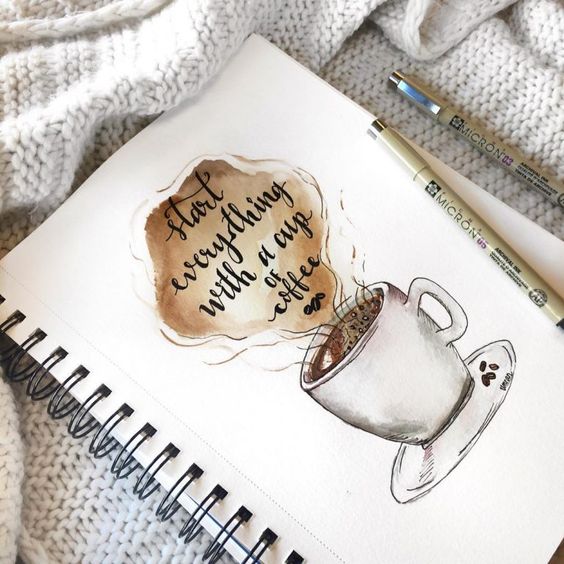 start
everything
with a cup
of
coffee
MICRON 03
ARCHIVAL INK
MICRON 05
ARCHIVAL INK